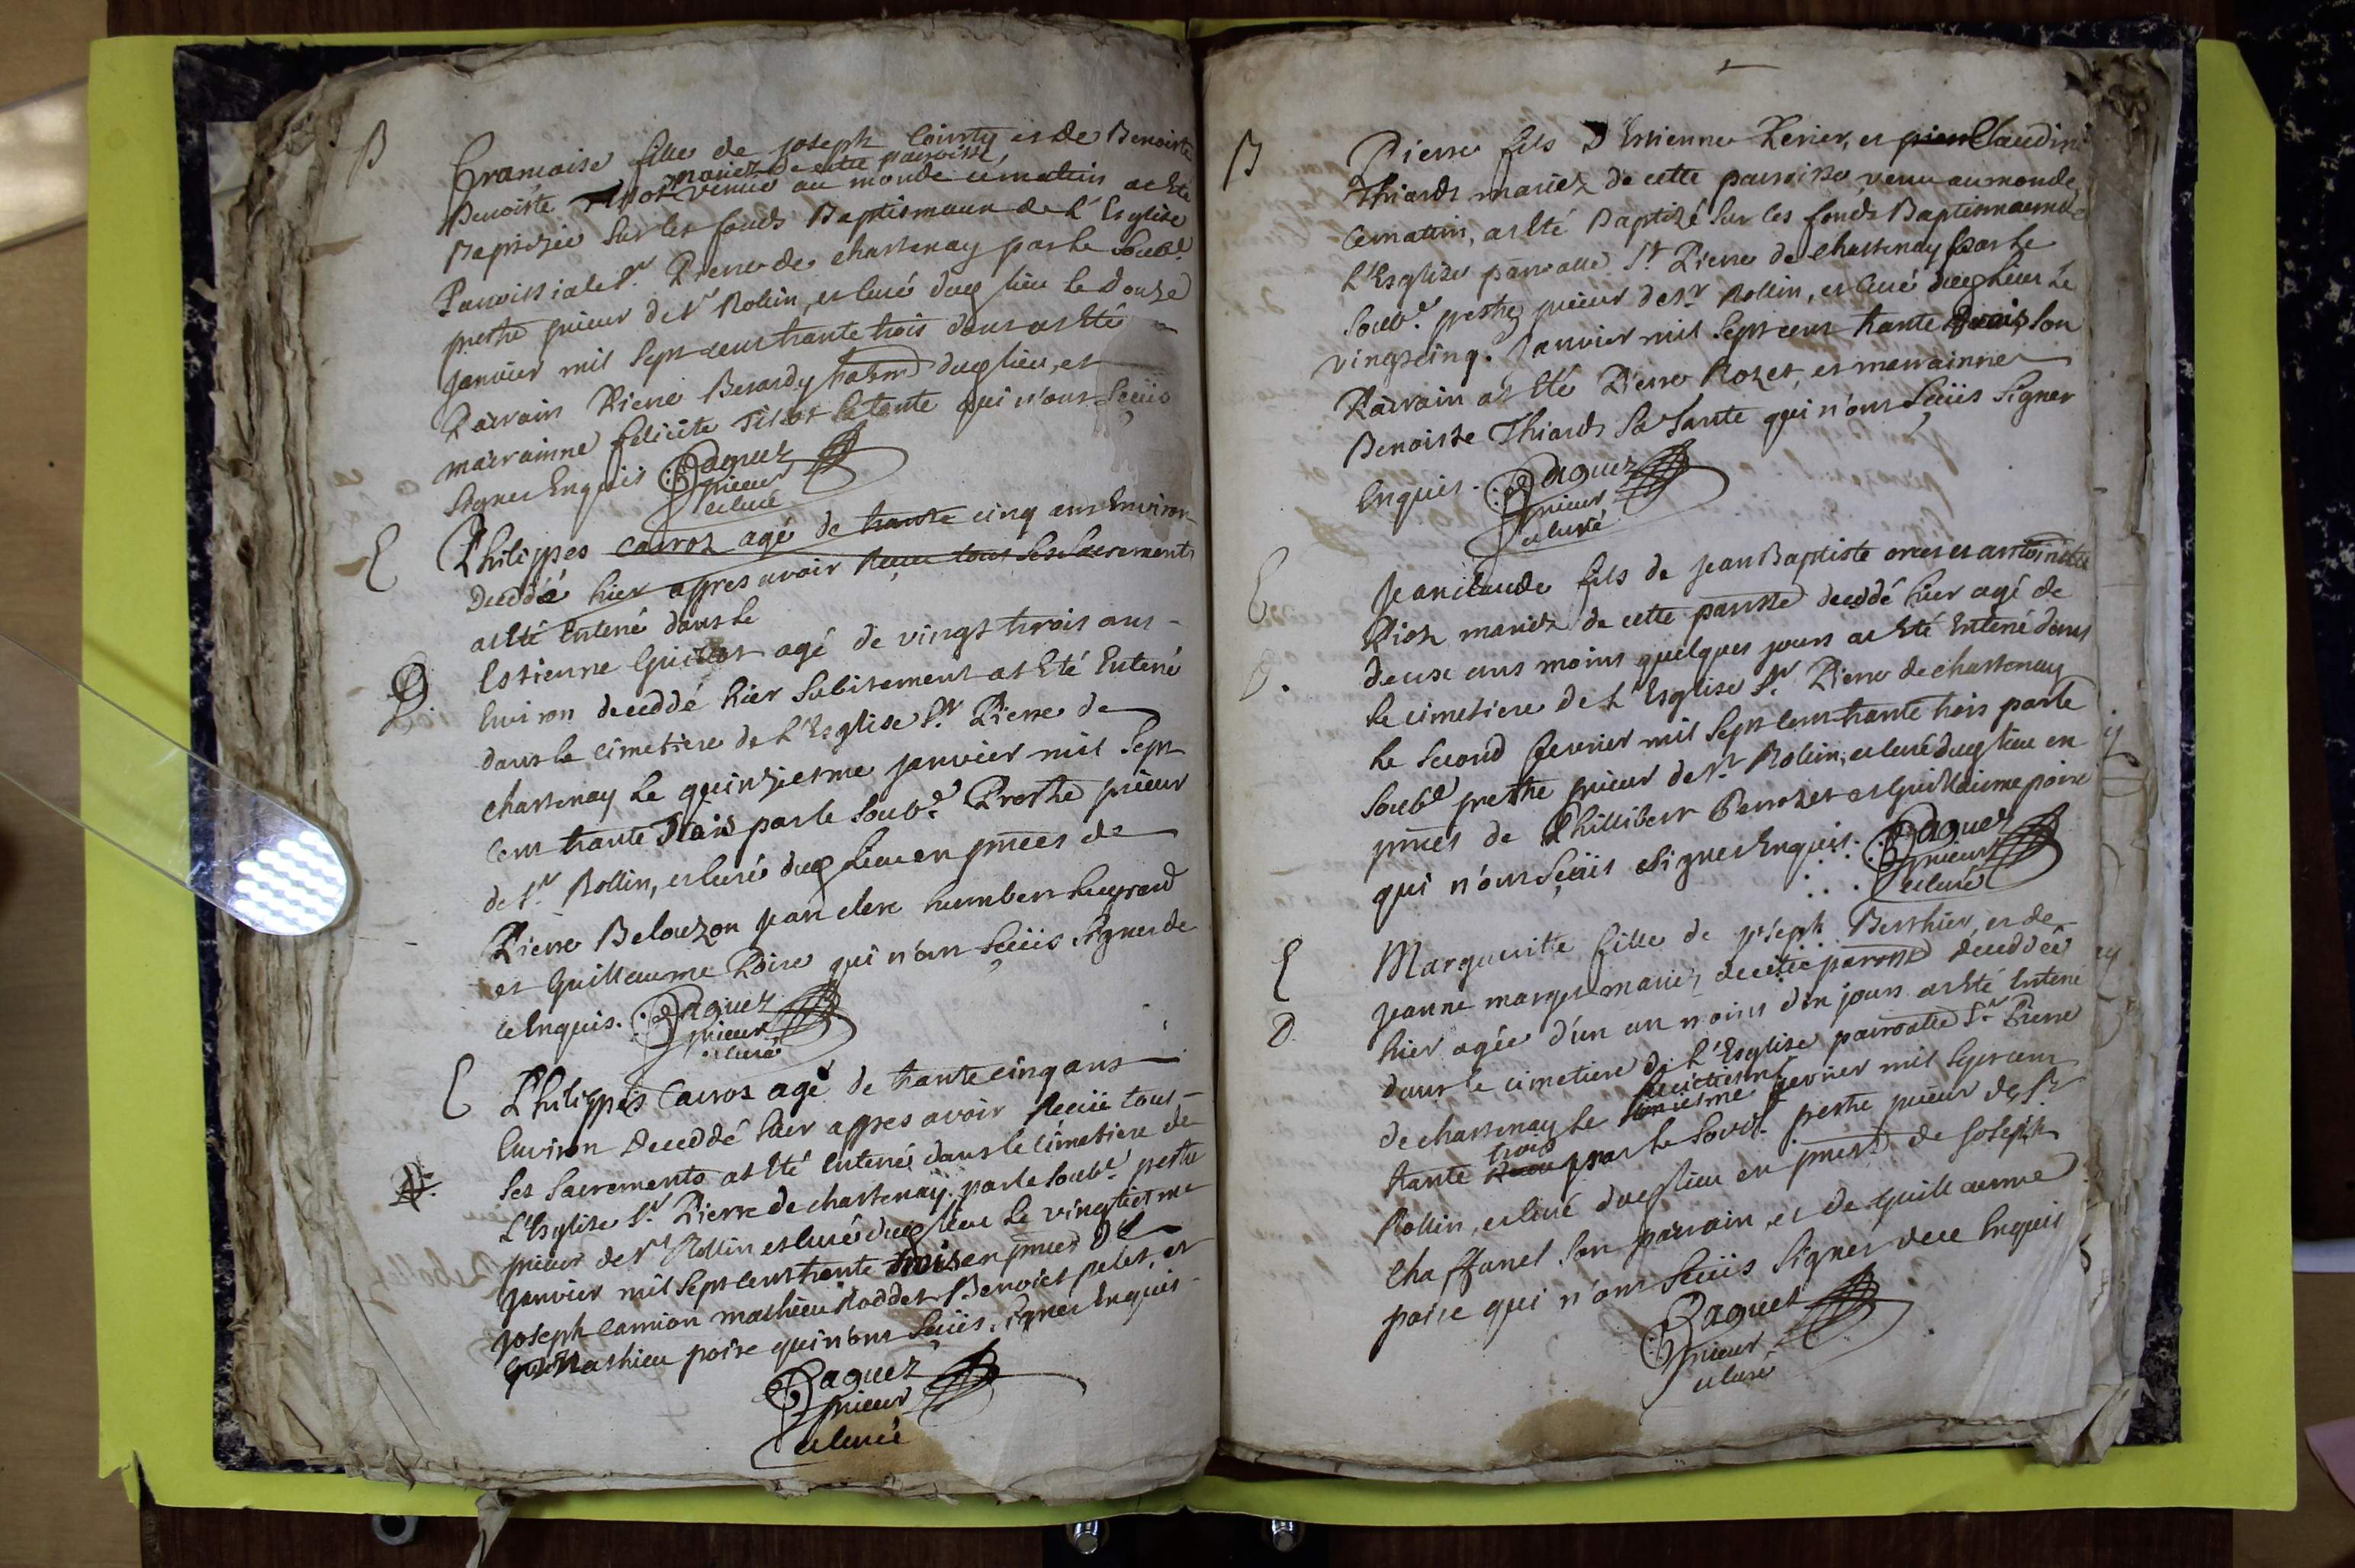 B
francoise fille de joseph Courty et de Benoiste
mariez de cette paroisse,
Benoiste Tillot venuë au monde ce matin at Eté
Baptizée sur les fonds Baptismaux de L'Esglise
Paroissiale St Pierre de chastenay par le soubé
prestre prieur de St Rollin, et curé dud lieu le Douze
janvier mil sept cent trante trois dont at Eté
Parrain Pierre Berardy dud lieu, et
marrainne felicite Tillot sa tante qui n'ont sçeüis
signer Enquis Paquez
prieur
et curé
E
Philippes Cairot agé de trante cinq ans Environ
Deceddé hier appres avoir Receu tous ses sacrements
at Eté Enterré dans le
D.
Estienne agé de vingt trois ans
Environ deceddé hier subitement at Eté Enterré
dans le cimetiere de L'Esglise St Pierre de
chastenay le quinziesme janvier mil sept
cent trante trois par le soubé Prestre prieur
de St Rollin, et curé dud lieu en pnces de
Pierre Belouzon jean clerc humbert
et Guillaume Poire qui n'ont sçeüis signer de
ce Enquis. Paquez
prieur
et curé
E
Philippes Cairot agé de trante cinq ans
Environ Deceddé hier appres avoir Receüe tous
D.
ses sacrements at Eté Enterré dans le cimetiere de
L'Esglise St Pierre de chastenay par le soubé prestre
prieur de St Rollin et curé dud lieu le vingtiesme
janvier mil sept cent trante trois en pnces de
joseph Camion mathieu Benoist et
Mathieu poire qui n'ont sçeüis signer Enquis
Paquez
prieur
et curé
B
Pierre fils D'Estienne Perier, et Claudine
Thiards mariez de cette paroisse, venu au monde
ce matin, at Eté Baptizé sur les fonds Baptismaux de
L'Esglise parroalle St Pierre de chastenay par le
soubé prestre prieur de St Rollin, et curé dud lieu le
vingtcinq. janvier mil sept cent trante trois son
Parrain at Eté Pierre Rozet, et marrainne
Benoiste Thiards sa Tante qui n'ont sçeüis signer
Enquis. Paquez
prieur
et curé
E
jeanclaude fils de jean Baptiste et antoinette
mariez de cette paroisse deceddé hier agé de
D.
deux ans moins quelques jours at Eté Enterré dans
le cimetiere de L'Esglise St Pierre de chastenay
le second fevrier mil sept cent trante trois par le
soubé prestre prieur de St Rollin, et curé dud lieu en
pnces de Phillibert Perrozet et Guillaume poire
qui n'ont sçeüis signer Enquis. Paquez
prieur
et curé
E
Margueritte fille de joseph Berthier, et de
jeanne mariez de cette paroisse deceddée
D.
hier agée d'un an moins dix jours at Eté Enterré
dans le cimetiere de L'Esglise parroalle St Pierre
de chastenay le fevrier mil sept cent
trois
trante par le soubé prestre prieur de St
Rollin, et curé dud lieu en pnces de joseph
Chaffanel son parrain et de Guillaume
poire qui n'ont sçeüis signer de ce Enquis
Paquez
prieur
et curé